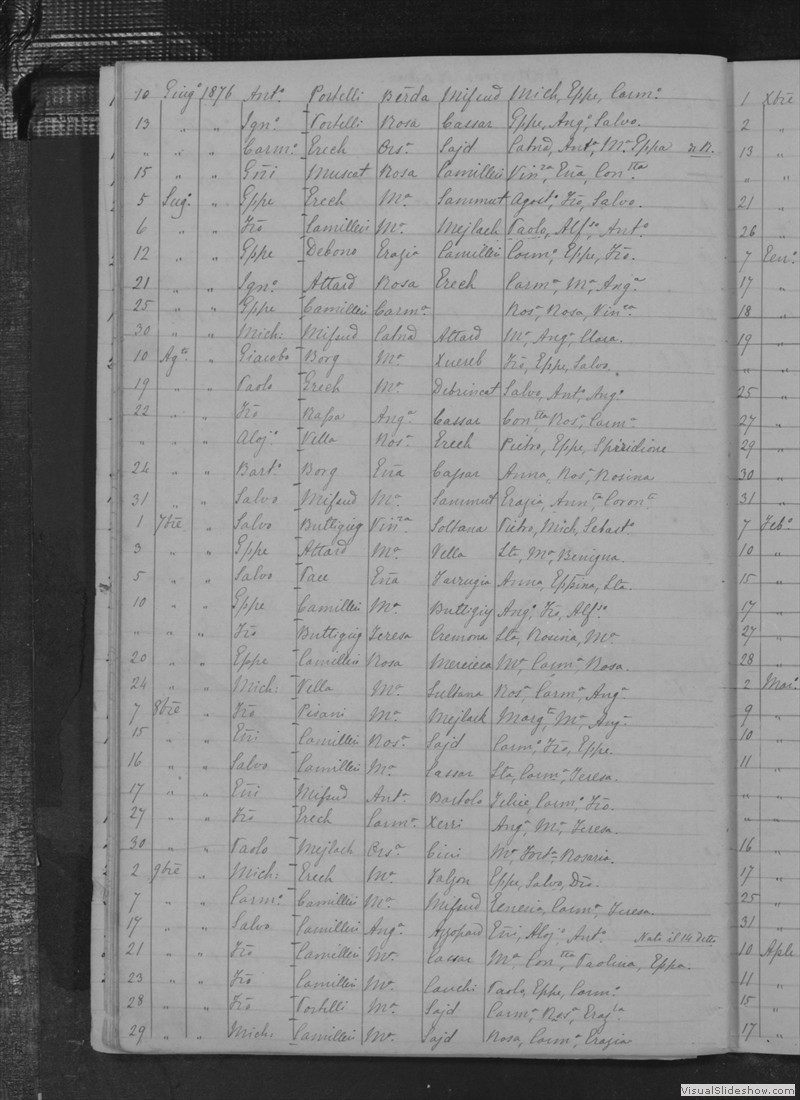 10 Giug.º 1876 Ant.º Portelli Bērda Mifsud Mich, Eppe, Carm.º
13 " " Ign.º Portelli Rosa Cassar Eppe, Ang.º, Salvo.
" " " Carm.º Grech Ors.ª Sajd Catnā, Ant.ª, M.ª Eppa
15 " " Gñi Muscat Rosa Camilleri Vin.za, Eña, Con.tta
5 Lug.º " Eppe Grech M.ª Sammut Agost.º, Frō, Salvo.
6 " " Frō Camilleri M.ª Mejlach Paolo, Alf.so, Ant.º
12 " " Eppe Debono Grazia Camilleri Carm.º, Eppe, Frō.
21 " " Ign.º Attard Rosa Grech Carm.ª, M.ª Ang.ª
25 " " Eppe Camilleri Carm.ª Ros.ª, Rosa, Vin.za
30 " " Mich: Mifsud Catnā Attard M.ª, Ang.ª, Clara.
10 Ag.to " Giacobo Borg M.ª Xuereb Frō, Eppe, Salvo.
19 " " Paolo Grech M.ª Debrincat Salvo, Ant.º, Ang.º
22 " " Frō Rapa Ang.ª Cassar Con.tta, Ros.ª, Carm.ª
" " " Aloj.º Vella Ros.ª Grech Pietro, Eppe, Spiridione
24 " " Bart.º Borg Eña Cassar Anna, Ros.ª, Rosina
31 " " Salvo Mifsud M.ª Sammut Grazia, Ann.ta, Coron.ª
1 7bre " Salvo Buttigieg Vin.za Soltana Pietro, Mich, Sebast.º
3 " " Eppe Attard M.ª Vella Sta, M.ª, Benigna.
5 " " Salvo Pace Eña Farrugia Anna, Eppina, Sta.
10 " " Eppe Camilleri M.ª Buttigieg Ang.º, Frō, Alf.so
" " " Frō Buttigieg Teresa Cremona Sta, Rosina, M.ª
20 " " Eppe Camilleri Rosa Mercieca M.ª, Carm.ª, Rosa.
24 " " Mich: Vella M.ª Sultana Ros.ª, Carm.ª, Ang.ª
7 8bre " Frō Pisani M.ª Mejlach Marg.ta, M.ª, Ang.ª
15 " " Eñi Camilleri Ros.ª Sajd Carm.º, Frō, Eppe.
16 " " Salvo Camilleri M.ª Cassar Sta, Carm.ª, Teresa.
17 " " Eñi Mifsud Ant.ª Bartolo Felice, Carm.º, Frō.
27 " " Frō Grech Carm.ª Xerri Ang.ª, M.ª, Teresa.
30 " " Paolo Mejlach Ors.ª Cini M.ª, Fort.ª, Rosaria.
2 9bre " Mich: Grech M.ª Falzon Eppe, Salvo, Dro.
7 " " Carm.º Camilleri M.ª Mifsud Carm.ª, Teresa.
17 " " Salvo Camilleri Ang.ª Azzopard Eñi, Aloj.º, Ant.º Nato il 14 detto
21 " " Frō Camilleri M.ª Cassar M.ª Con.tta, Paolina, Eppa.
23 " " Frō Camilleri M.ª Cauchi Paolo, Eppe, Carm.º
28 " " Frō Portelli M.ª Sajd Carm.ª, Ros.ª, Graz.ia
29 " " Mich: Camilleri M.ª Sajd Rosa, Carm.ª, Grazia
1 Xbre
2 "
13 "
" "
21 "
26 "
7 Gen.º
17 "
18 "
19 "
" "
25 "
27 "
29 "
30 "
31 "
7 Feb.º
10 "
15 "
17 "
27 "
28 "
2 Mar.º
9 "
10 "
11 "
" "
" "
16 "
17 "
25 "
31 "
10 Aple
11 "
15 "
17 "
VisualSlideshow.com